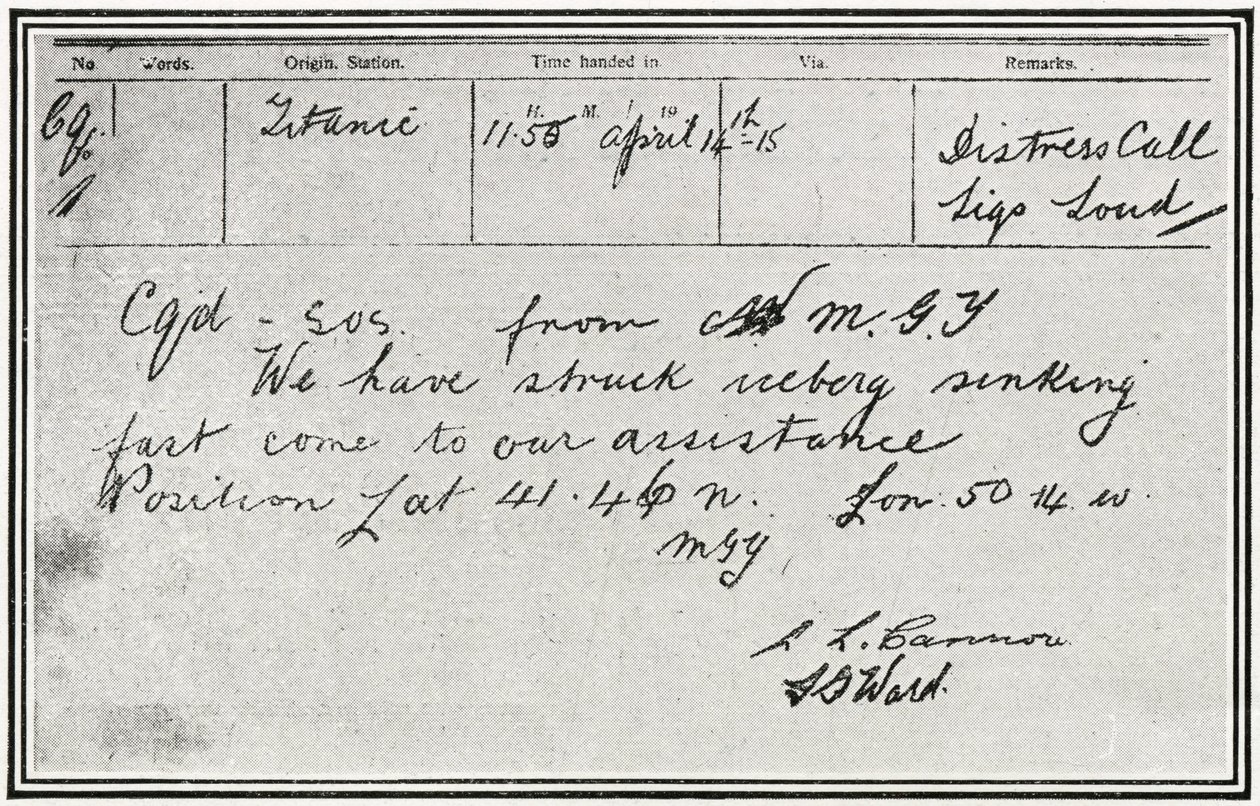 No. Words. Origin. Station. Time handed in. Via. Remarks.
H. M. 19
Titanic 11.50 April 14th-15 Distress Call
Sigs Loud
Cqd - SOS. from M.G.Y
We have struck iceberg sinking
fast come to our assistance
Position Lat 41.46 n. Lon. 50 14 w.
MGY
L. Cannon
Ward.